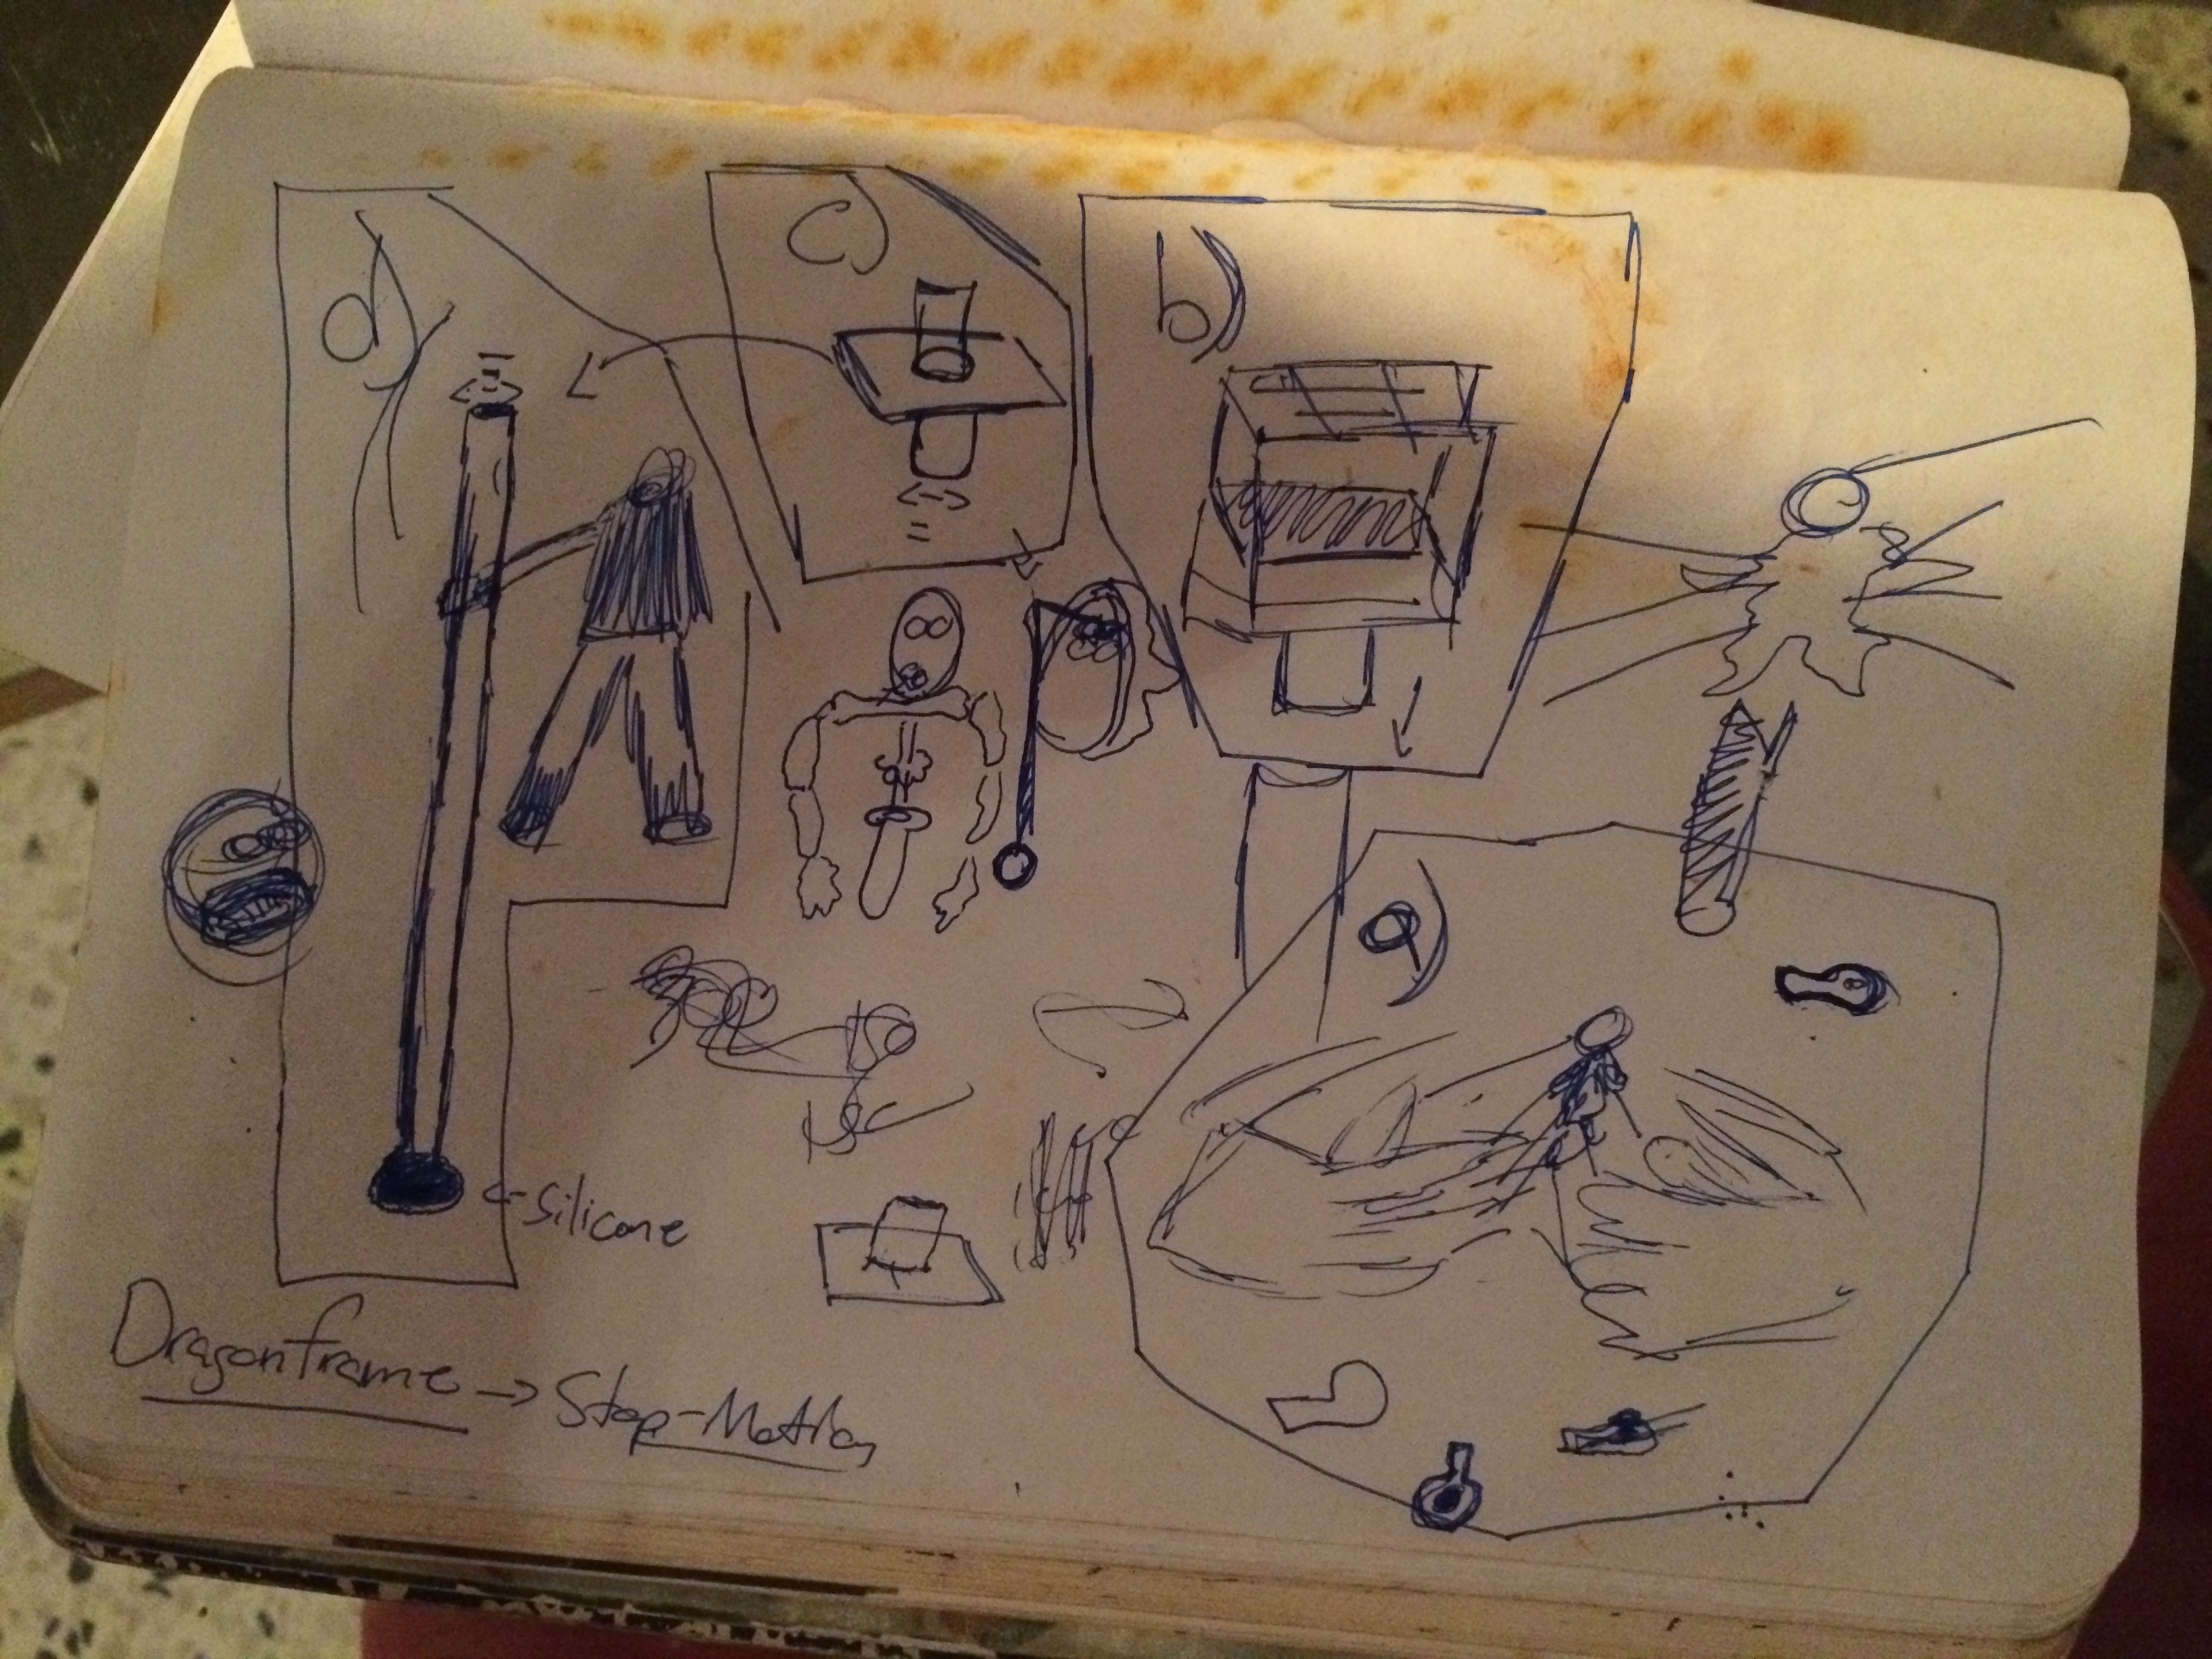 d)
c)
b)
a)
<- Silicone
Dragonframe -> Stop-Motion